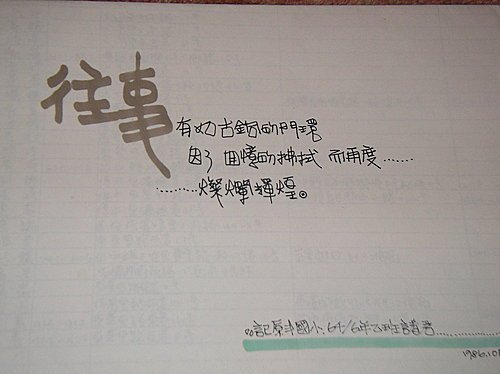 往事
有如古銅的門環
因了 回憶的拂拭 而再度……
………燦爛輝煌。
記草斗國小
1986.10